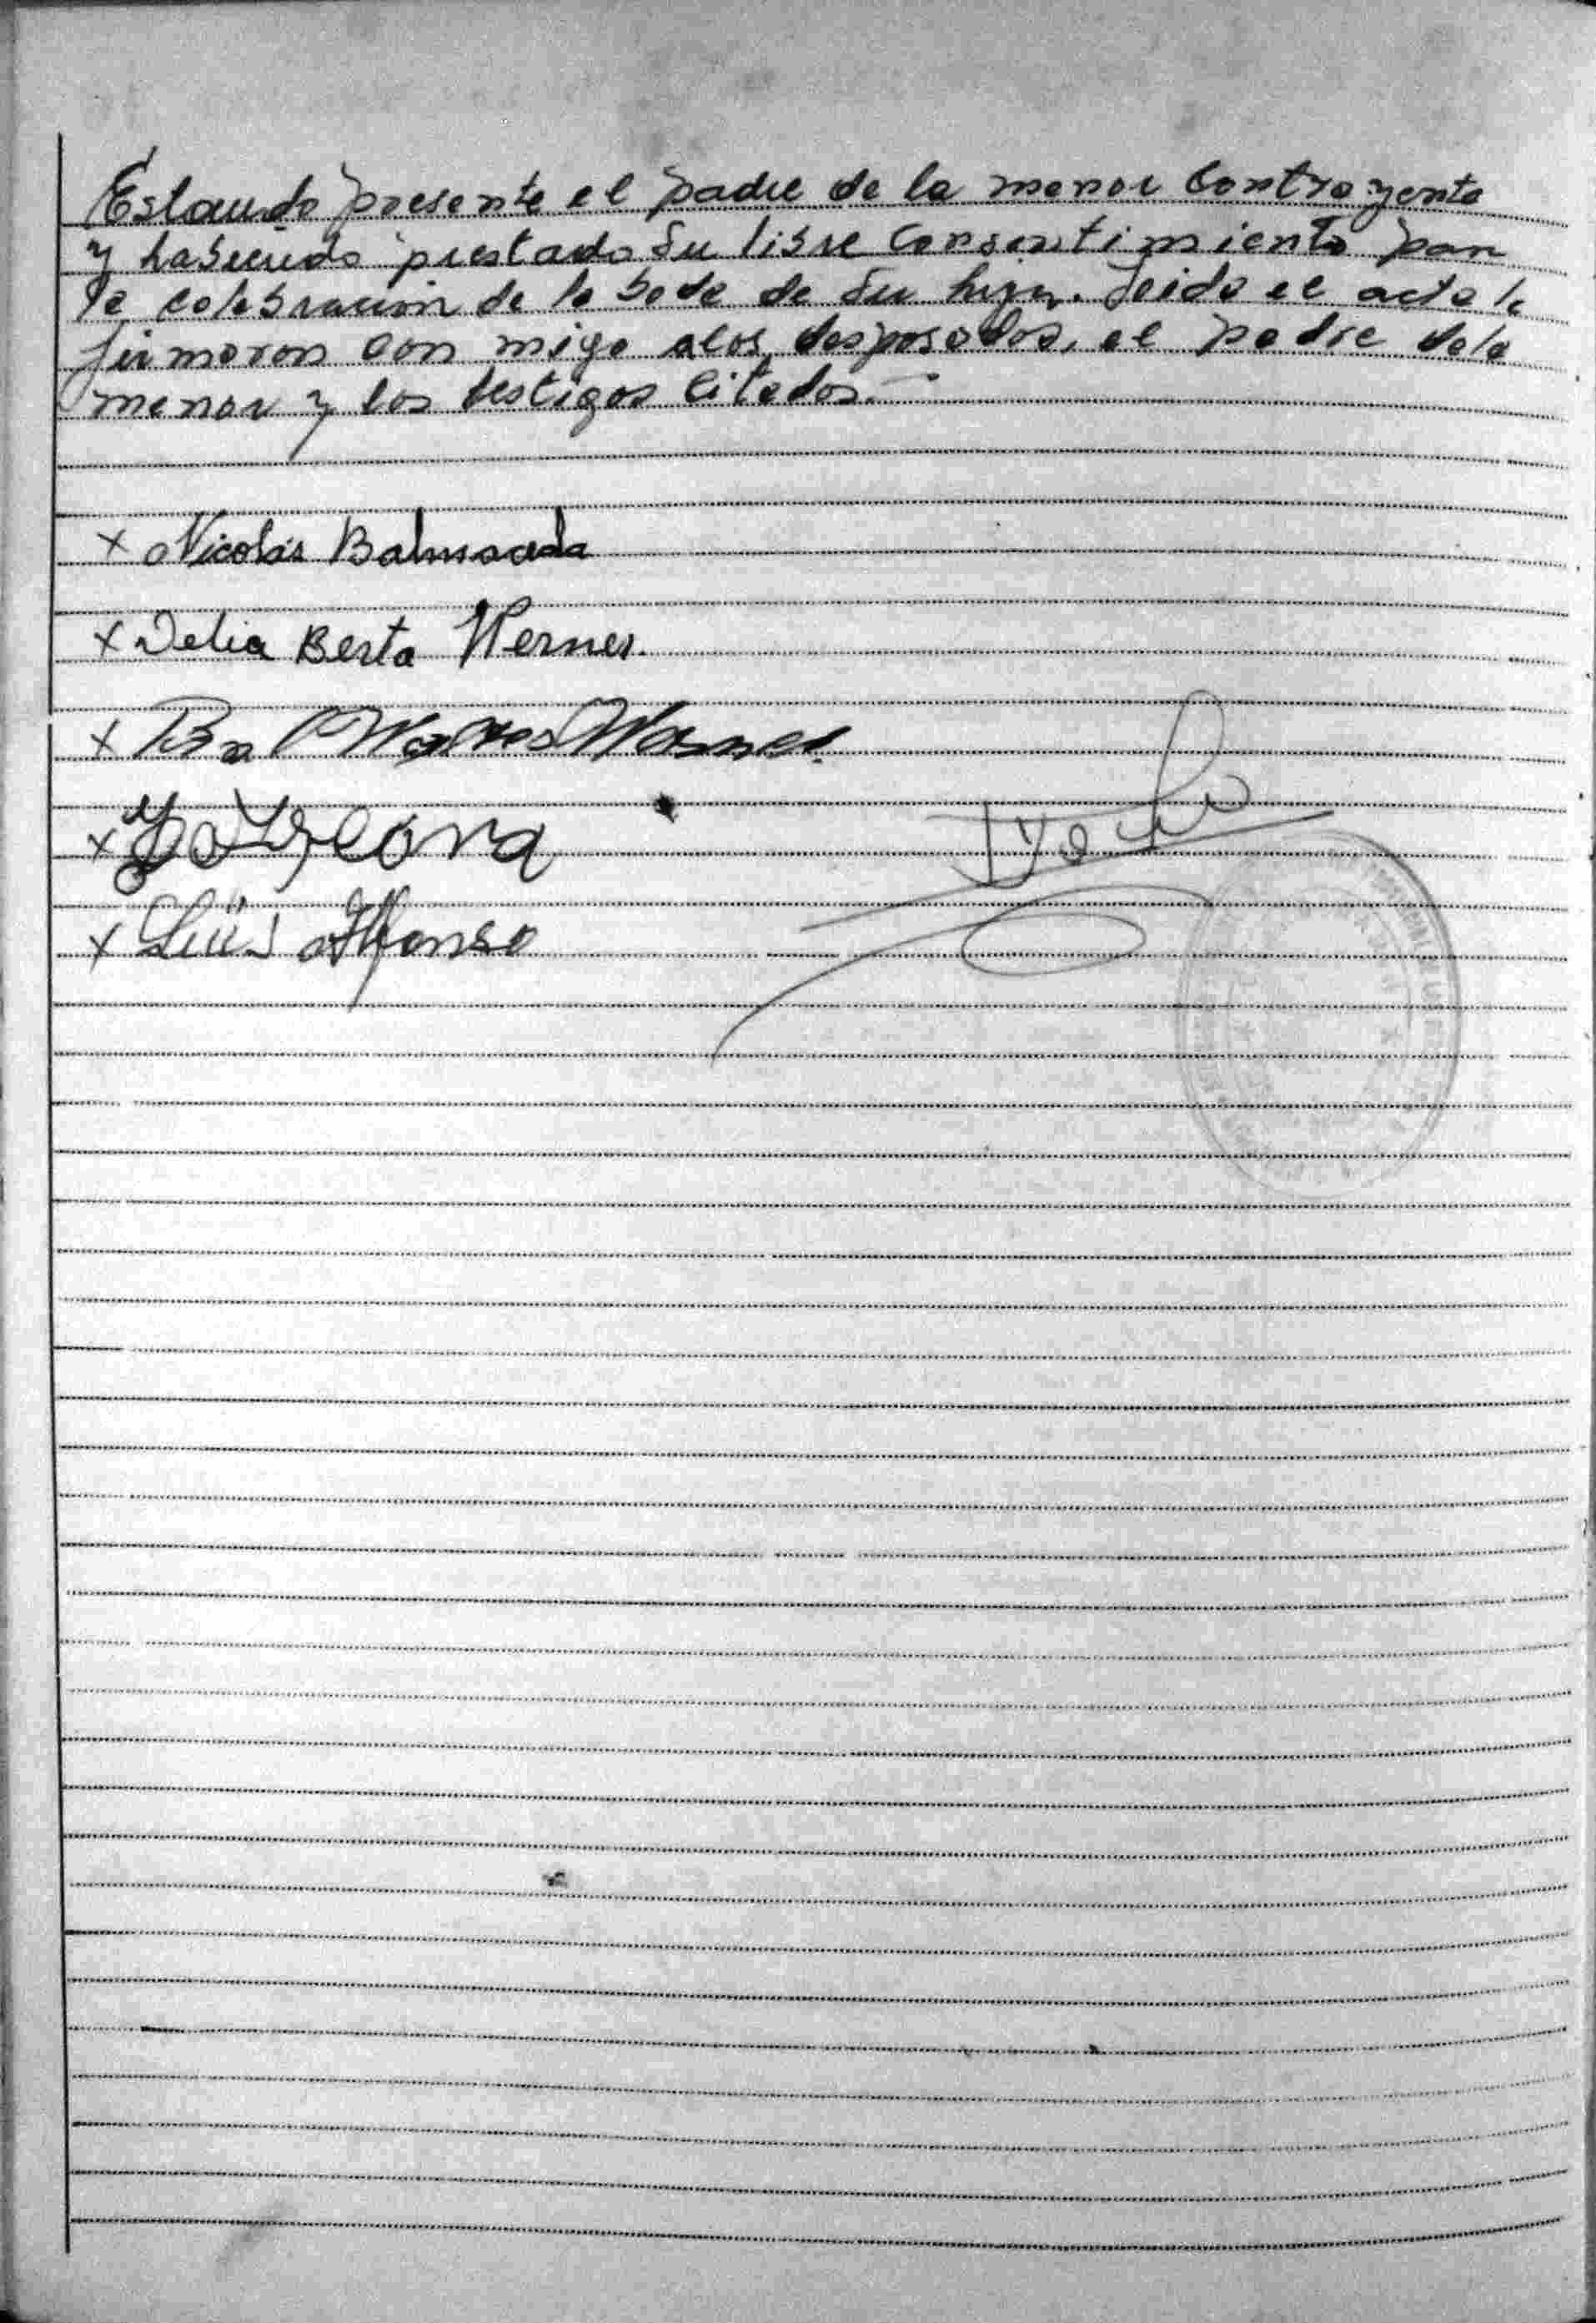 Estando presente el padre de la menor Contrayente
y habiendo prestado Su libre Consentimiento par
la celebración de la boda de Su hija. Leida el acta la
firmaron con migo alos desposados, el padre dela
menor y los testigos Citados.
x Nicolás Balmaceda
x Delia Berta Werner.
x
x
x Luis Alfonso